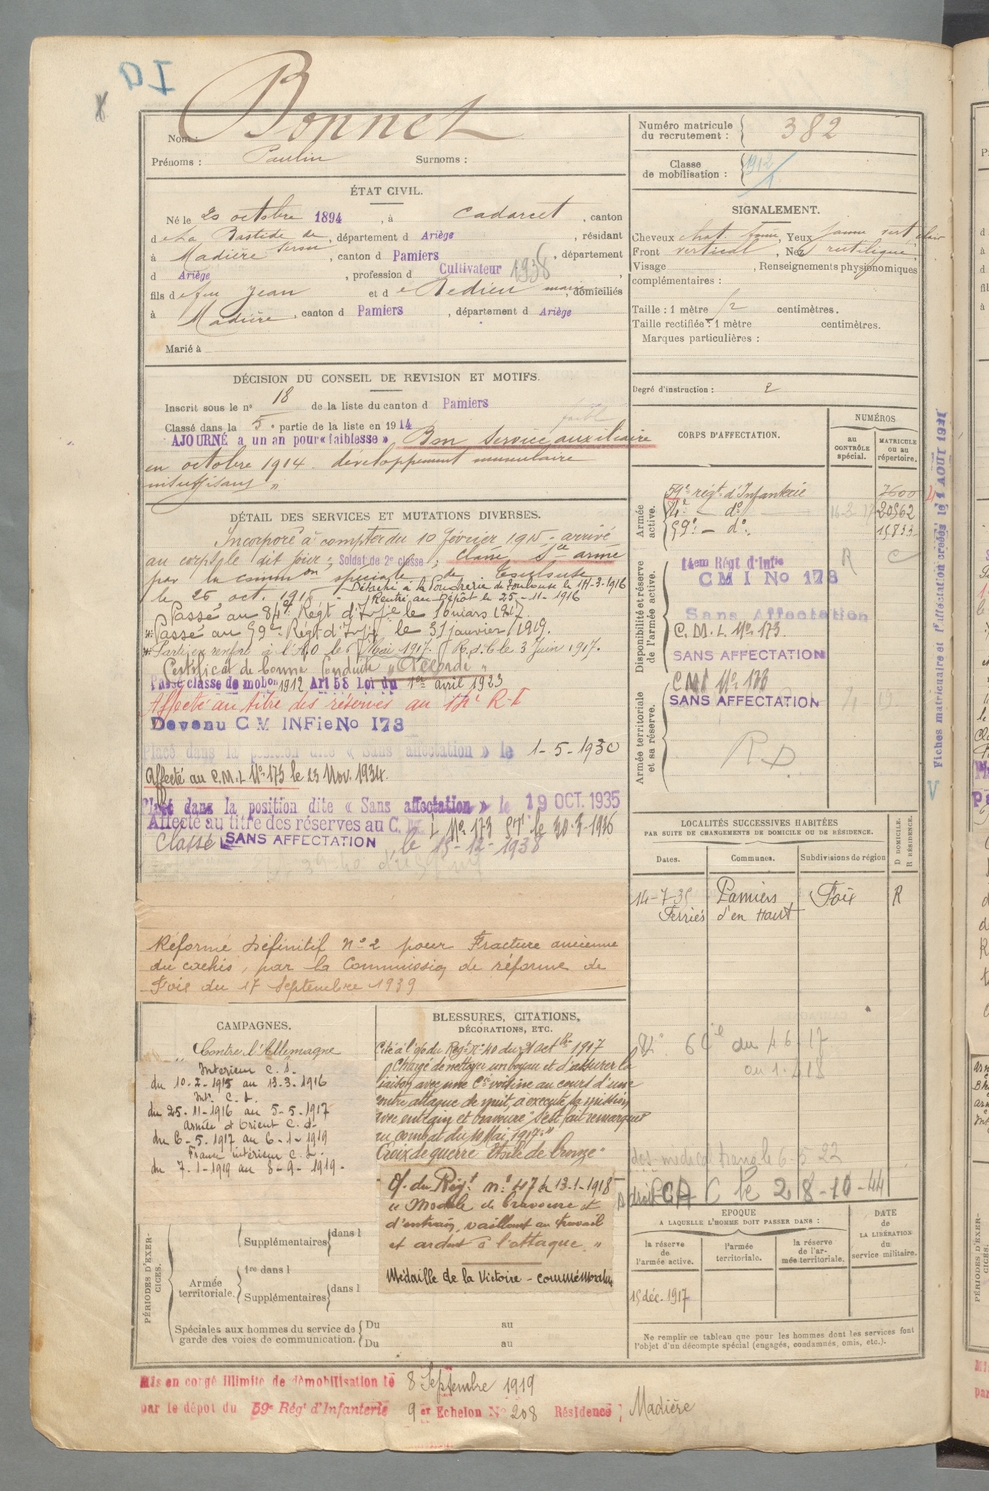 Nom : Bonnet
Prénoms : Paulin Surnoms :
Numéro matricule du recrutement : 382
Classe de mobilisation : 1912
ÉTAT CIVIL.
Né le 20 octobre 1894, à Cadarcet, canton
de La Bastide de Serou, département d Ariège, résidant
à Madière, canton d Pamiers, département
d Ariège, profession d Cultivateur 1938
fils de feu Jean et de Dedieu Marie, domiciliés
à Madière, canton d Pamiers, département d Ariège
Marié à
SIGNALEMENT.
Cheveux chat. , Yeux jaune vert clair
Front vertical, Nez rectiligne
Visage , Renseignements physionomiques
complémentaires :
Taille : 1 mètre centimètres.
Taille rectifiée : 1 mètre centimètres.
Marques particulières :
Degré d'instruction : 2
DÉCISION DU CONSEIL DE REVISION ET MOTIFS.
Inscrit sous le n° 18 de la liste du canton d Pamiers
Classé dans la 5e partie de la liste en 1914
AJOURNÉ a un an pour « faiblesse », Bon service auxiliaire
en octobre 1914. développement musculaire
insuffisant "
DÉTAIL DES SERVICES ET MUTATIONS DIVERSES.
Incorporé à compter du 10 février 1915 - arrivé
au corps le dit jour ; Soldat de 2e classe ; classé Sce armé
par la common spéciale de Toulouse
le 25 oct. 1915 - Détaché à la Poudrerie de Toulouse le 14-3-1916
Rentré au Dépôt le 25-11-1916
Passé au 84e Régt d'Infie le 10 mars 1917
Passé au 59e Régt d'Infie le 31 janvier 1919.
Parti en renfort à l'A.O le 6 Mai 1917. R.d.C le 3 Juin 1917.
Certificat de bonne conduite "Accordé"
Passé classe de mobon 1912 Art 58 Loi du 1er avril 1923
Affecté au titre des réserves au 14e R.I
Devenu C M INFie No 173
Placé dans la position dite « Sans affectation » le 1-5-1930
Affecté au C.M.I. No 173 le 15 Nov. 1934.
Placé dans la position dite « Sans affectation » le 19 OCT. 1935
Affecté au titre des réserves au C. M. I. No 173 le 20-3-1936
Classé SANS AFFECTATION le 15-12-1938
Réformé définitif n° 2 pour Fracture ancienne
du rachis, par la Commission de réforme de
Foix du 17 Septembre 1939
CORPS D'AFFECTATION.
NUMÉROS
au CONTRÔLE spécial.
MATRICULE OU au répertoire.
Armée active.
59e régt d'Infanterie 7600
84e - do 20862
59e - do 15833
Disponibilité et réserve de l'armée active.
14em Régt d'Infie R C
C M I No 173
Sans Affectation
C. M. I. No 173.
SANS AFFECTATION
Armée territoriale et sa réserve.
C M I No 173
SANS AFFECTATION
RD
LOCALITÉS SUCCESSIVES HABITÉES
PAR SUITE DE CHANGEMENTS DE DOMICILE OU DE RÉSIDENCE.
Dates. Communes. Subdivisions de région
D DOMICILE. R RÉSIDENCE.
14-7-35 Pamiers Foix R
Ferriés d'en Haut
CAMPAGNES.
Contre l'Allemagne
Intérieur C.S.
du 10-2-1915 au 13-3-1916
Int. C.S.
du 25-11-1916 au 5-5-1917
Armée d'Orient C.d.
du 6-5-1917 au 6-1-1919
France intérieur C.S.
du 7-1-1919 au 8-9-1919-
BLESSURES, CITATIONS,
DÉCORATIONS, ETC.
Cité à l'o/ du Régt N° 40 du 21 octbre 1917
"Chargé de nettoyer un boyau et d'assurer la
liaison avec une Cie voisine au cours d'une
contre attaque de nuit, a exécuté sa mission
avec entrain et bravoure s'est fait remarquer
au combat du 10 Mai 1917."
Croix de guerre étoile de bronze
O/ du Régt n° 47 du 13-1-1918
" Modèle de bravoure et
d'entrain, vaillant au travail
et ardent à l'attaque. "
Médaille de la Victoire - commémorative
C le 28-10-44
PÉRIODES D'EXERCICES.
Supplémentaires dans l
Armée territoriale.
1re dans l
Supplémentaires dans l
Spéciales aux hommes du service de garde des voies de communication.
Du au
Du au
EPOQUE
A LAQUELLE L'HOMME DOIT PASSER DANS :
la réserve de l'armée active.
l'armée territoriale.
la réserve de l'armée territoriale.
DATE DE LA LIBÉRATION du service militaire.
15 déc. 1917
Ne remplir ce tableau que pour les hommes dont les services font
l'objet d'un décompte spécial (engagés, condamnés, omis, etc.).
Mis en congé illimité de démobilisation le 8 Septembre 1919
par le dépôt du 59e Rég' d'Infanterie 9 er Echelon N° 208 Résidence ; Madière